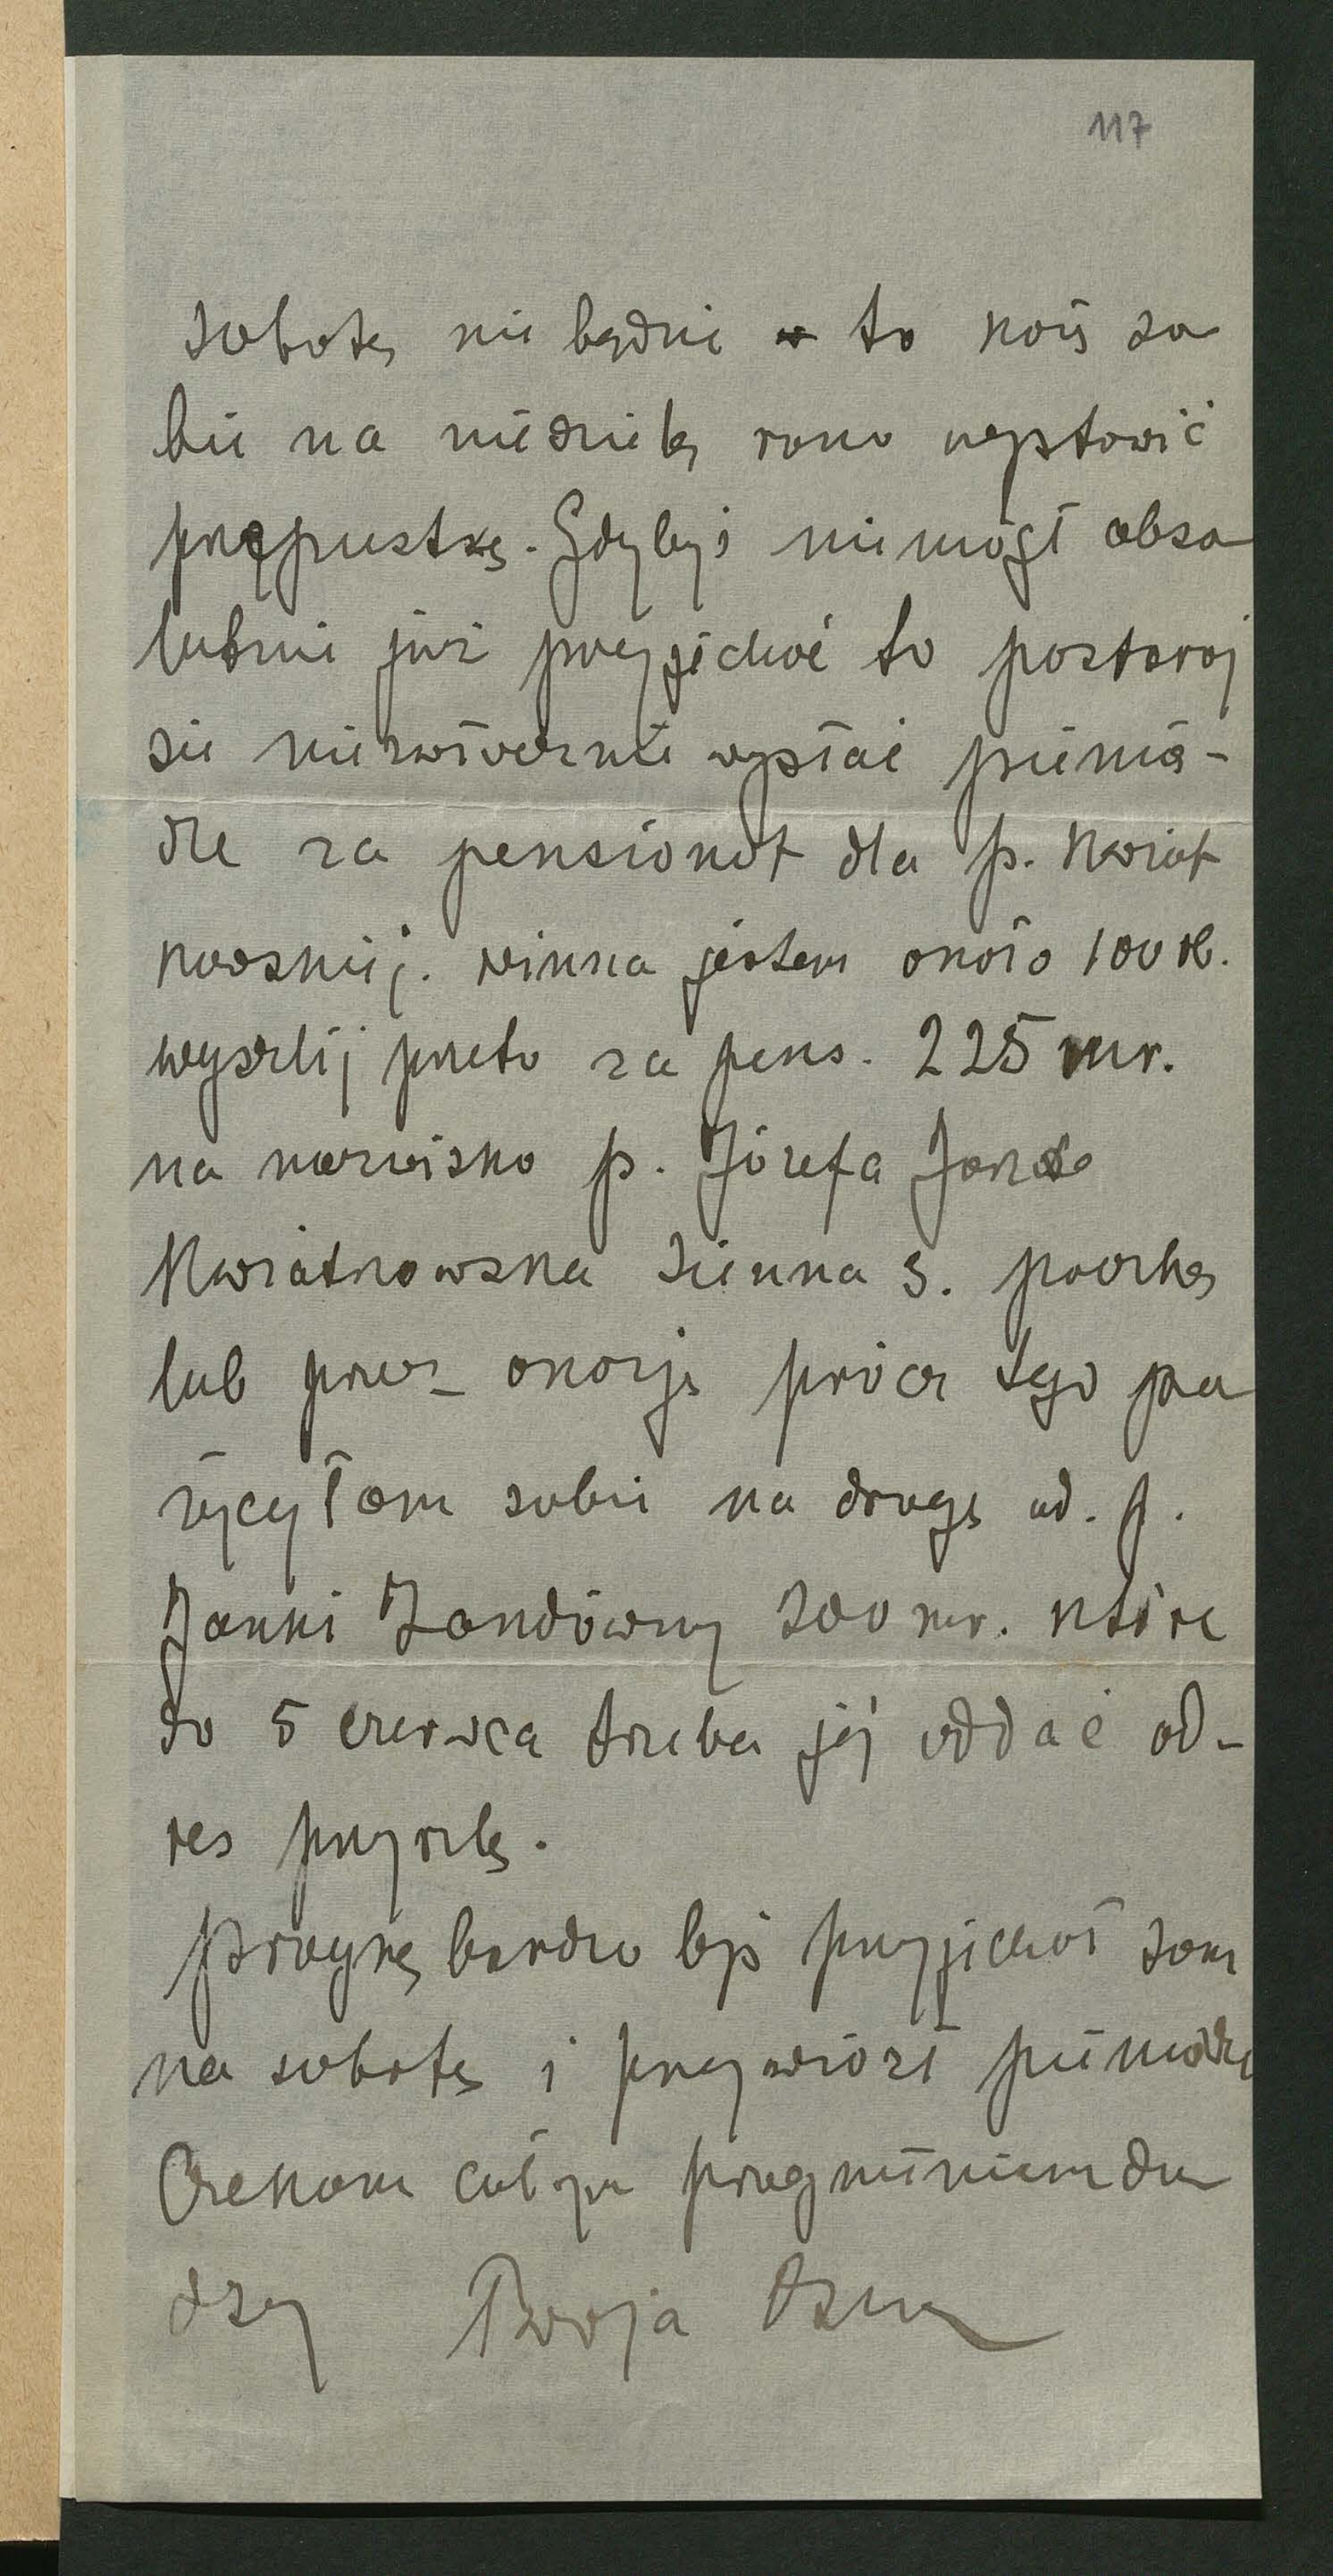 117
sobotę nie będzie to każ so
bie na niedzielę rano wystawić
przepustkę. Gdybyś niemógł abso
lutnie już przyjechać to postaraj
sie niezwłocznie wysłać pienią-
dze za pensionat dla p. Kwiat
kowskiej. winna jestem około 100 rb.
wyszlij przeto za pens. 225 mr.
na nazwisko p. Józefa
Kwiatkowska Sienna 3. pocztą
lub przez okazję prócz tego po
życzyłam sobie na drogę od. p.
Janki Zandówny 300 mr. które
do 5 czerwca trzeba jej oddać ad-
res przyszlę.
Pragnę bardzo byś przyjechał sam
na sobotę i przywiózł pieniądze
Czekam cała pragnieniem du
szy Twoja